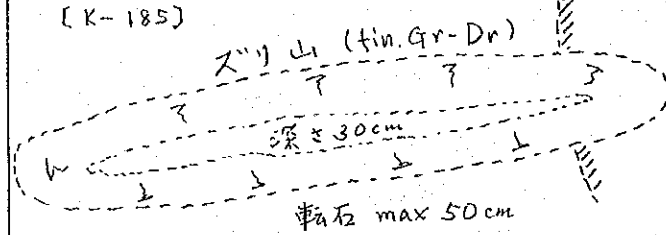 [K-185]
ズリ山 (fin. Gr-Dr)
深さ30cm
転石 max 50cm